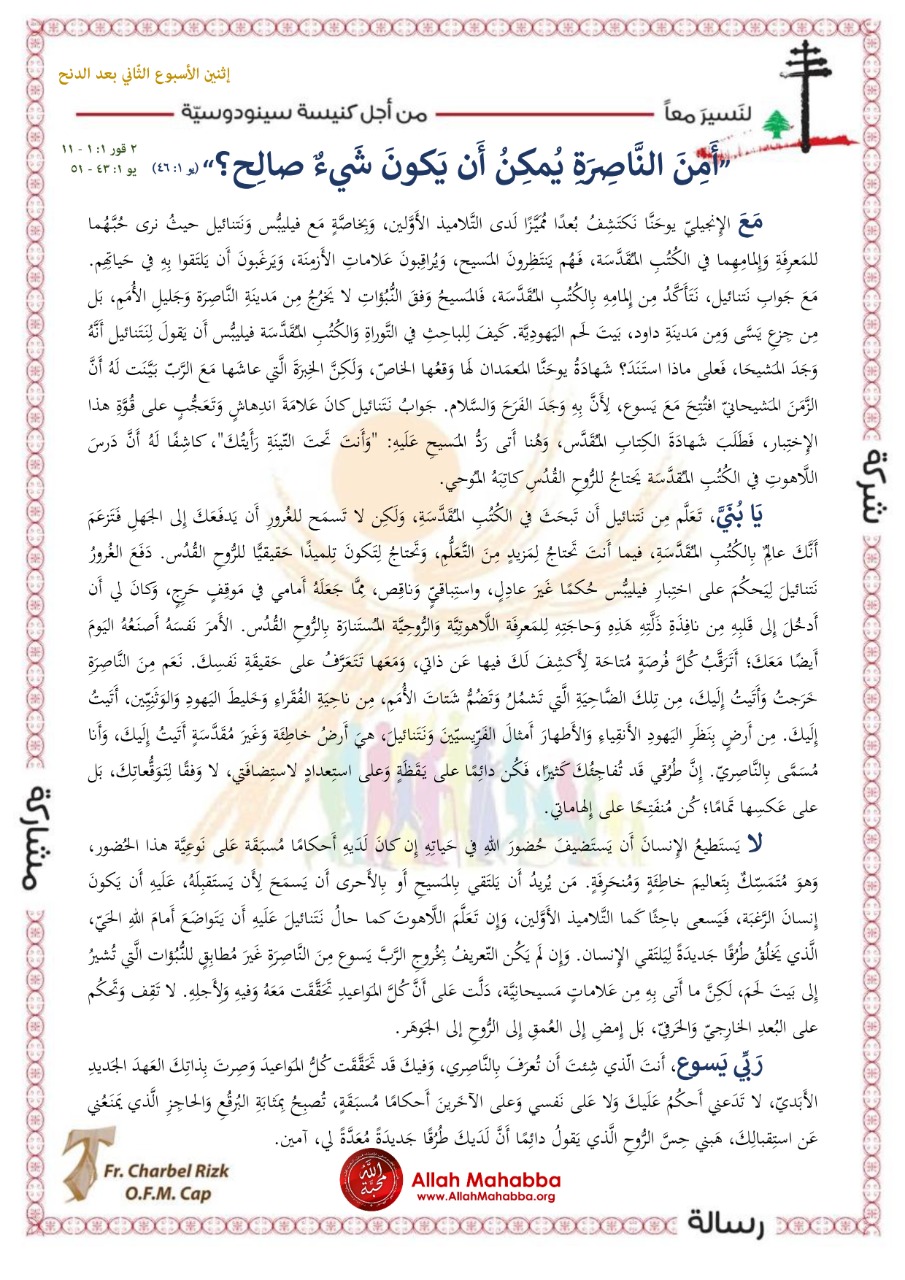 إثنين الأسبوع الثّاني بعد الدنح
لنَسيرَ معاً
من أجل كنيسة سينودوسيّة
٢ قور ١: ١ - ١١
يو ١: ٤٣ - ٥١
”أَمِنَ النَّاصِرَةِ يُمكِنُ أَن يَكونَ شَيءٌ صالِح؟“ (يو ١: ٤٦)
مَعَ الإنجيليّ يوحَنَّا نَكتَشِفُ بُعدًا مُمَيَّزًا لَدى التَّلاميذ الأوَّلين، وَبِخاصَّةٍ مَع فيليبُّس وَنَتنائيل حيثُ نرى حُبَّهُما
للمَعرِفَةِ وَإلمامِهِما في الكُتُبِ المُقَدَّسَة، فَهُم يَنتَظِرونَ المَسيح، وَيُراقِبونَ عَلاماتِ الأزمِنَة، وَيَرغَبونَ أن يَلتَقوا بِهِ في حَياتِهِم.
مَعَ جَوابِ نَتنائيل، نَتَأكَّدُ مِن إلمامِهِ بِالكُتُبِ المُقَدَّسَة، فَالمَسيحُ وَفقَ النُّبُؤاتِ لا يَخرُجُ مِن مَدينَةِ النَّاصِرَةِ وَجَليلِ الأُمَمِ، بَل
مِن جِزعِ يَسَّى وَمِن مَدينَةِ داود، بَيتَ لَحم اليَهوديَّة. كَيفَ لِلباحِثِ في التَّوراةِ والكُتُبِ المُقَدَّسَة فيليبُّس أن يَقولَ لِنَتنائيل أنَّهُ
وَجَدَ المَشيحَا، فَعلى ماذا استَنَدَ؟ شَهادَةُ يوحَنَّا المَعمَدان لَها وَقعُها الخاصّ، وَلَكِنَّ الخِبرَةَ الَّتي عاشَها مَعَ الرَّبّ بَيَّنَت لَهُ أنَّ
الزَّمَنَ المَشيحانيّ افتُتِحَ مَعَ يَسوع، لِأنَّ بِهِ وَجَدَ الفَرَحَ وَالسَّلام. جَوابُ نَتنائيل كانَ عَلامَةَ اندِهاشٍ وَتَعَجُّبٍ على قُوَّةِ هذا
الإختِبار، فَطَلَبَ شَهادَةَ الكِتابِ المُقَدَّس، وَهُنا أتى رَدُّ المَسيحِ عَلَيهِ: "وَأنتَ تَحتَ التّينَةِ رَأيتُكَ"، كاشِفًا لَهُ أنَّ دَرسَ
اللَّاهوتِ في الكُتُبِ المُقَدَّسَة يَحتاجُ للرُّوحِ القُدُسِ كاتِبَهُ المُوحي.
يَا بُنَيَّ، تَعَلَّم مِن نَتنائيل أن تَبحَثَ في الكُتُبِ المُقَدَّسَةِ، وَلَكِن لا تَسمَح للغُرورِ أن يَدفَعَكَ إلى الجَهلِ فَتَزعَمَ
أنَّكَ عالِمٌ بِالكُتُبِ المُقَدَّسَة، فيما أنتَ تَحتاجُ لِمَزيدٍ مِنَ التَّعَلُّمِ، وَتَحتاجُ لِتَكونَ تِلميذًا حَقيقيًّا للرُّوحِ القُدُس. دَفَعَ الغُرورُ
نَتنائيلَ لِيَحكُمَ على اختِبارِ فيليبُّس حُكمًا غَيرَ عادِلٍ، واستِباقيٍّ وَناقِص، مِمَّا جَعَلَهُ أمامي في مَوقِفٍ حَرِجٍ، وَكانَ لي أن
أدخُلَ إلى قَلبِهِ مِن نافِذَةِ ذَلَّتِهِ هَذِهِ وَحاجَتِهِ لِلمَعرِفَةِ اللَّاهوتيَّة والرُّوحِيَّة المُستَنارَة بِالرُّوحِ القُدُس. الأمرَ نَفسَهُ أصنَعُهُ اليَومَ
أيضًا مَعَكَ؛ أتَرَقَّبُ كُلَّ فُرصَةٍ مُتاحَة لِأكشِفَ لَكَ فيها عَن ذاتي، وَمَعَها تَتَعَرَّفُ على حَقيقَةِ نَفسِكَ. نَعَم مِنَ النَّاصِرَةِ
خَرَجتُ وَأتَيتُ إلَيكَ، مِن تِلكَ الضَّاحِيَةِ الَّتي تَشمُلُ وَتَضُمُّ شَتاتَ الأُمَم، مِن ناحِيَةِ الفُقَراءِ وَخَليطَ اليَهودِ وَالوَثَنِيّين، أتَيتُ
إلَيكَ. مِن أرضٍ بِنَظَرِ اليَهودِ الأنقِياءِ وَالأطهارِ أمثالَ الفَرّيسيّينَ وَنَتنائيلَ، هيَ أرضٌ خاطِئَة وَغَيرَ مُقَدَّسَةٍ أتَيتُ إلَيكَ، وَأنا
مُسَمَّى بِالنَّاصِريّ. إنَّ طُرُقي قَد تُفاجِئُكَ كَثيرًا، فَكُن دائِمًا على يَقظَةٍ وَعلى استِعدادٍ لاستِضافَتي، لا وَفقًا لِتَوَقُّعاتِكَ، بَل
على عَكسِها تَمامًا؛ كُن مُنفَتِحًا على إلهاماتي.
لا يَستَطيعُ الإنسانَ أن يَستَضيفَ حُضورَ اللهِ في حَياتِهِ إن كانَ لَدَيهِ أحكامًا مُسبَقَة عَلى نَوعِيَّة هذا الحُضور،
وَهوَ مُتَمَسِّكٌ بِتَعاليم خاطِئَةٍ وَمُنحَرِفَةٍ. مَن يُريدُ أن يَلتَقي بِالمَسيحِ أو بِالأحرى أن يَسمَحَ لِأن يَستَقبِلَهُ، عَلَيهِ أن يَكونَ
إنسانَ الرَّغبَة، فَيَسعى باحِثًا كَما التَّلاميذ الأوَّلين، وَإن تَعَلَّمَ اللَّاهوتَ كما حالُ نَتنائيلَ عَلَيهِ أن يَتَواضَعَ أمامَ اللهِ الحَيّ،
الَّذي يَخلُقُ طُرُقًا جَديدَةً لِيَلتَقي الإنسان. وَإن لَم يَكُن التّعريفُ بِخُروجِ الرَّبَّ يَسوع مِنَ النَّاصِرَةِ غَيرَ مُطابِقٍ لِلنُّبُؤات الَّتي تُشيرُ
إلى بَيتَ لَحَم، لَكِنَّ ما أتى بِهِ مِن عَلاماتٍ مَسيحانِيَّة، دَلَّت عَلى أنَّ كُلَّ المَواعيدِ تَحَقَّقَت مَعَهُ وَفيهِ وَلِأجلِهِ. لا تَقِف وَتَحكُم
على البُعدِ الخارِجيّ وَالحَرفيّ، بَل إمضِ إلى العُمقِ إلى الرُّوحِ إلى الجَوهَر.
رَبِّي يَسوع، أنتَ الّذي شِئتَ أن تُعرَفَ بِالنَّاصِري، وَفيكَ قَد تَحَقَّقَت كُلُّ المَواعيدَ وَصِرتَ بِذاتِكَ العَهدَ الجَديدِ
الأبَديّ، لا تَدَعني أحكُمُ عَلَيكَ وَلا عَلى نَفسي وَعلى الآخَرينَ أحكامًا مُسبَقَةٍ، تُصبِحُ بِمَثابَةِ البُرقُعِ وَالحاجِزِ الَّذي يَمنَعُني
عَن استِقبالِكَ، هَبني حِسَّ الرُّوحِ الَّذي يَقولُ دائِمًا أنَّ لَدَيكَ طُرُقًا جَديدَةً مُعَدَّةً لي، آمين.
شركة
مشاركة
Fr. Charbel Rizk
O.F.M. Cap
الله محبّة
Allah Mahabba
www.AllahMahabba.org
رسالة